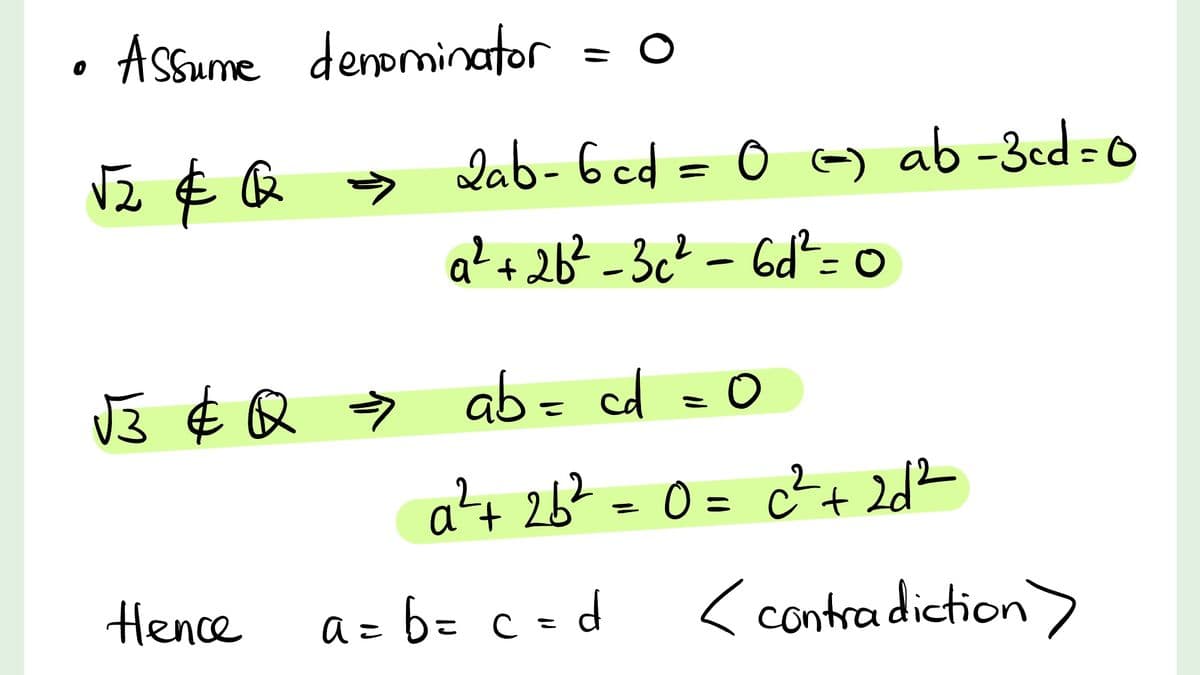 • Assume denominator = 0
√2 ∉ ℚ ⇒ 2ab - 6cd = 0 ↔ ab - 3cd = 0
a² + 2b² - 3c² - 6d² = 0
√3 ∉ ℚ ⇒ ab = cd = 0
a² + 2b² = 0 = c² + 2d²
Hence a = b = c = d < contradiction >